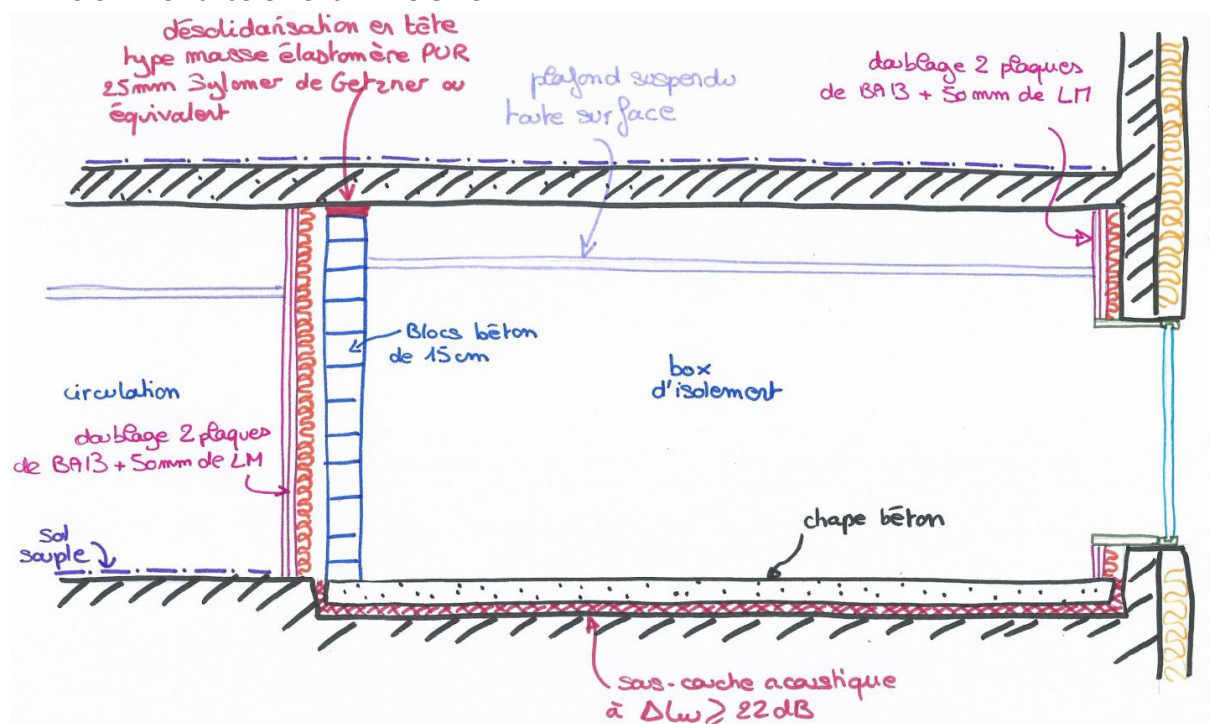 désolidarisation en tête
type masse élastomère PUR
25mm Sylomer de Getzner ou
équivalent
plafond suspendu
toute surface
doublage 2 plaques
de BA13 + 50mm de LM
Blocs béton
de 15cm
circulation
box
d'isolement
doublage 2 plaques
de BA13 + 50mm de LM
chape béton
sol
souple
sous-couche acoustique
à ΔLw ≥ 22 dB